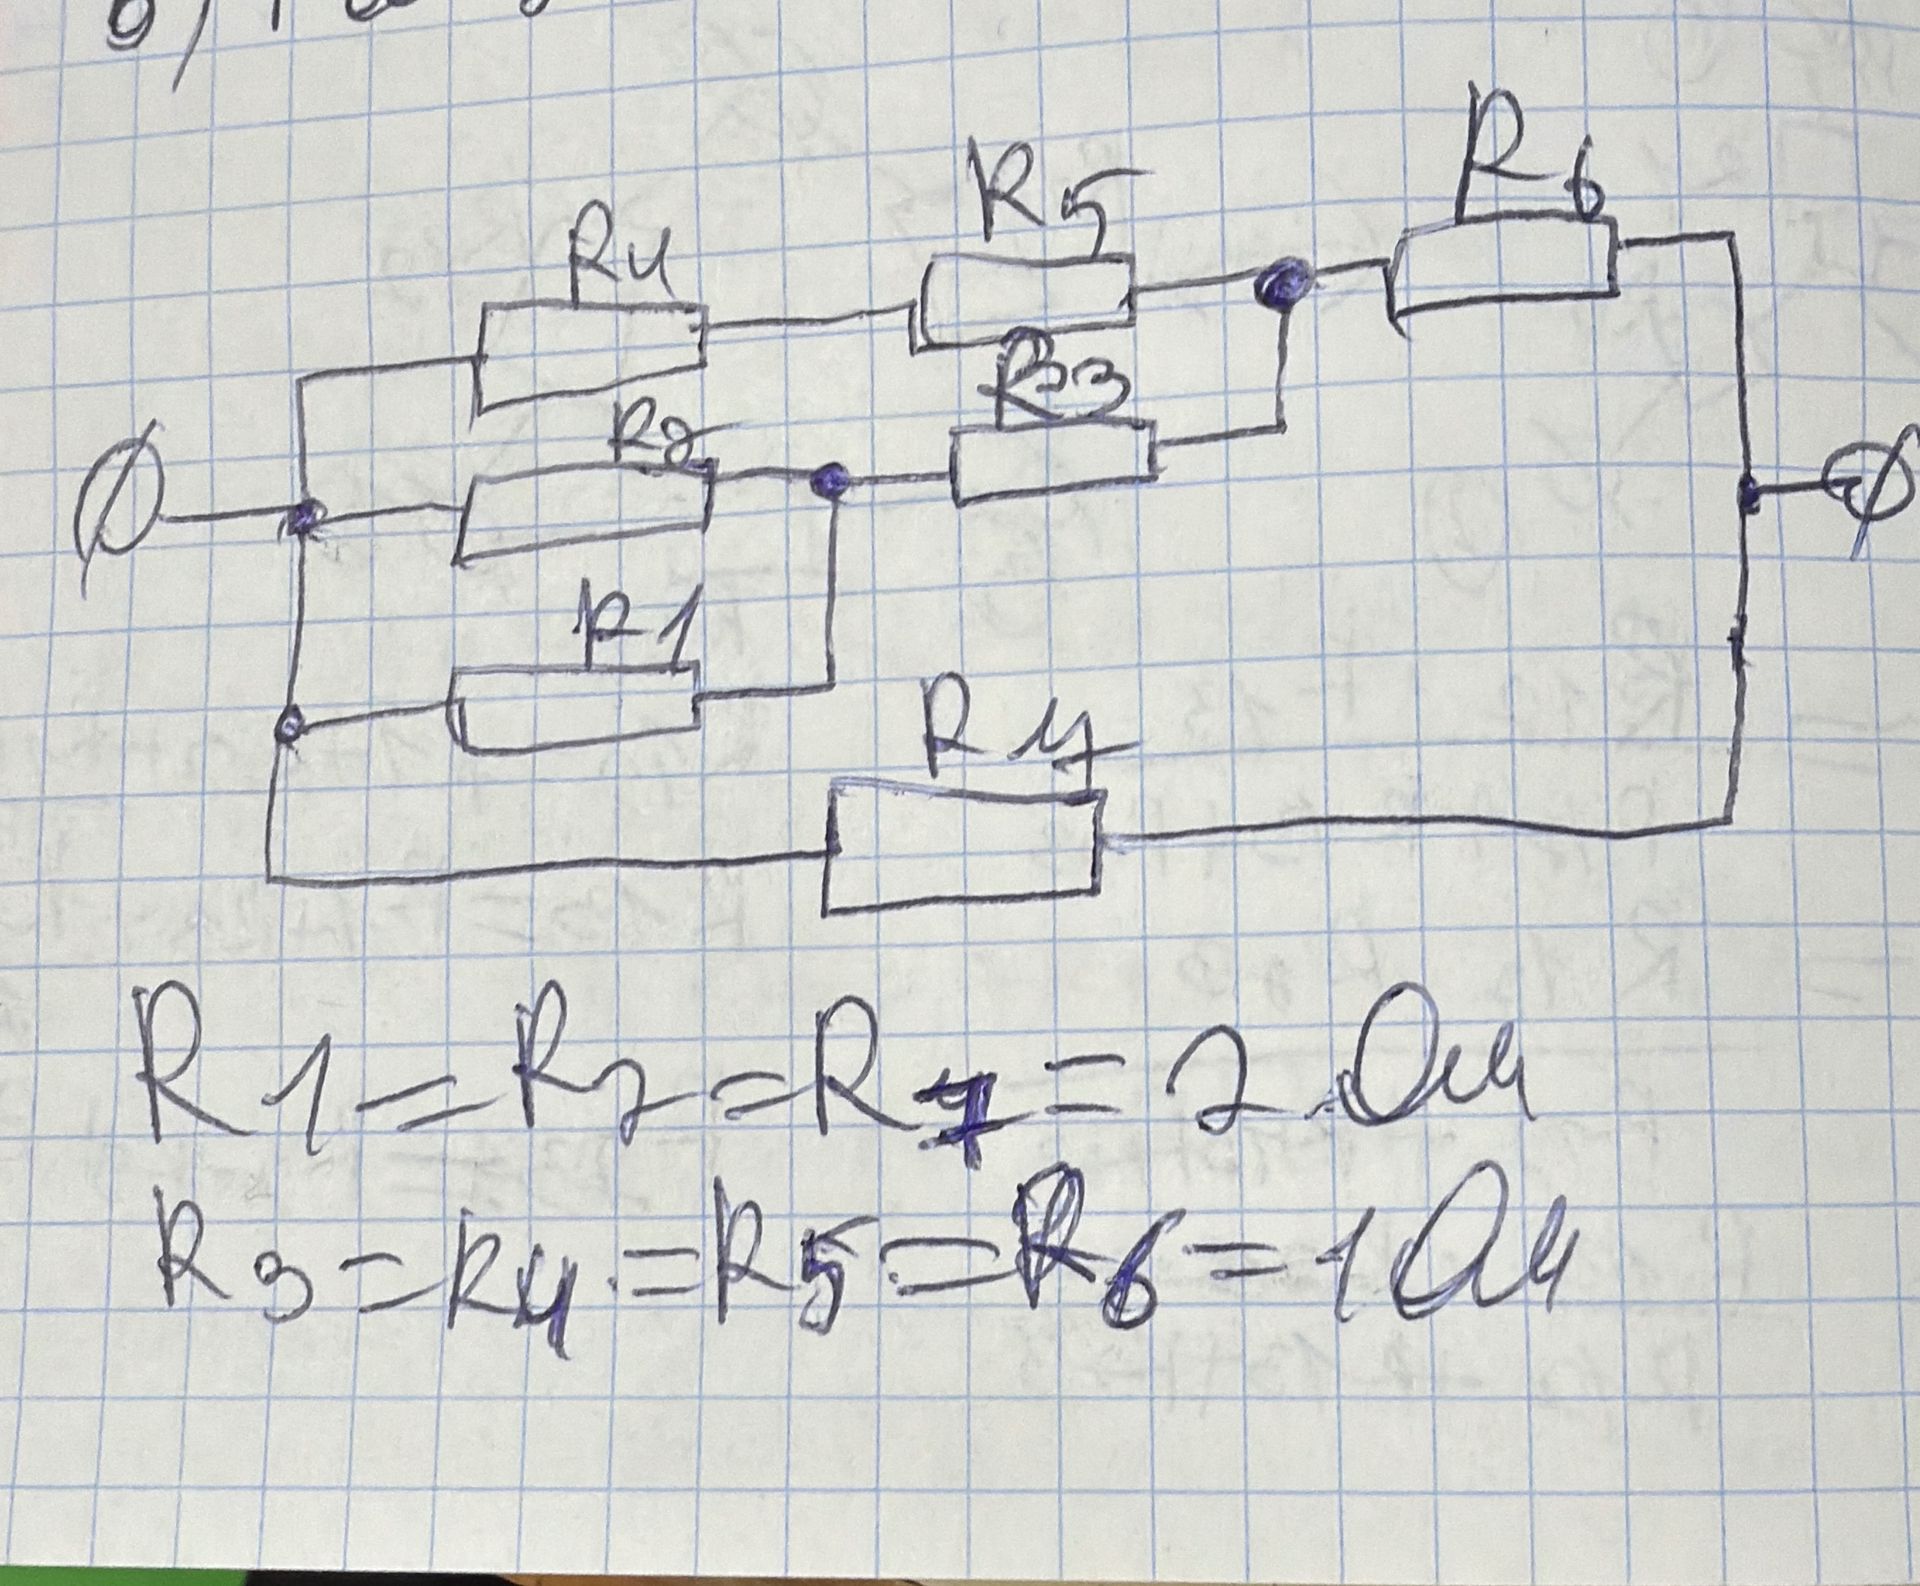 R5 R6
R4
R3
R2
R1
R7
R1=R2=R7=2 Ом
R3=R4=R5=R6=1 Ом